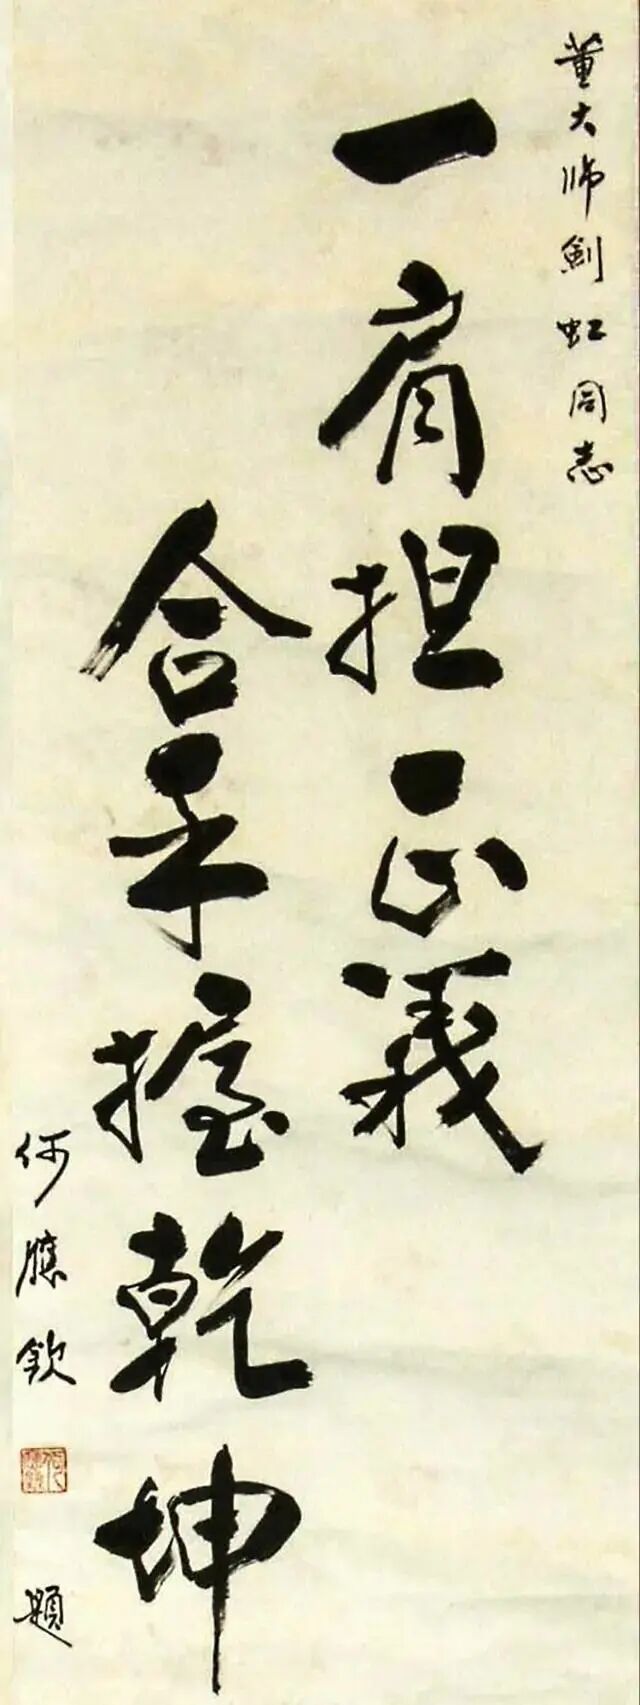 董大师剑虹同志
一肩担正義
合手握乾坤
何應欽
題